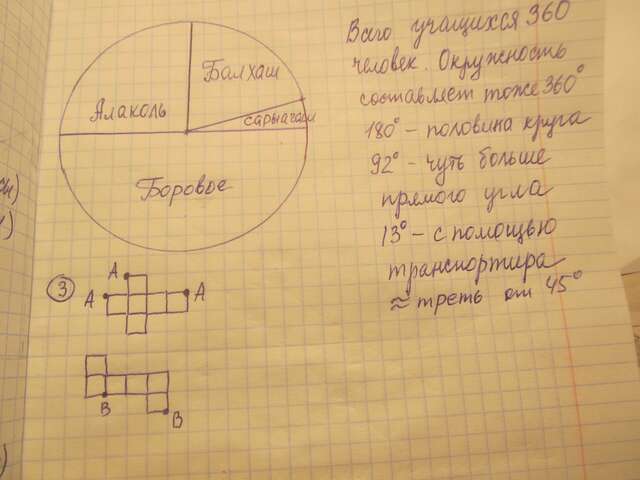 Балхаш
Алаколь
сарыагаш
Боровое
Всего учащихся 360
человек. Окружность
составляет тоже 360°
180° - половина круга
92° - чуть больше
прямого угла
13° - с помощью
транспортира
≈ треть от 45°
3
A
A
A
B
B